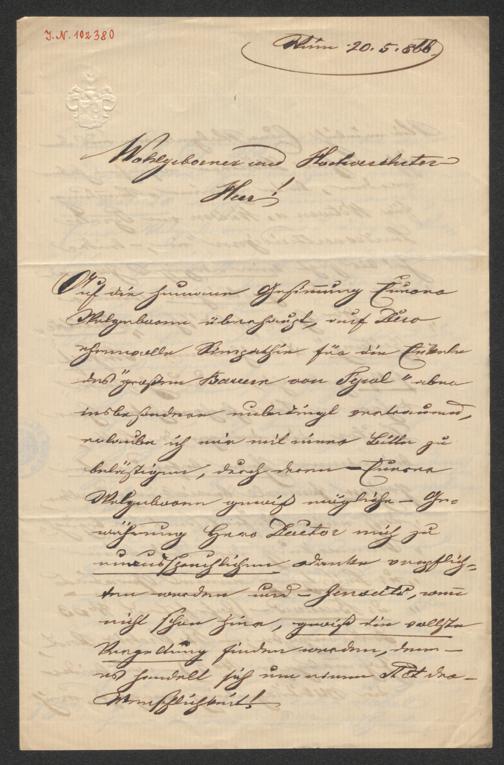 J.N. 102380
Wien 20.5.866
Wohlgeborner und Hochverehrter
Herr!
Auf die humane Gesinnung Eurer
Wolgeboren überhaupt, auf Dero
ehrenvolle Simpathie für die Enkeln
des "großen Bauern von Tyrol" aber
insbesondere unbedingt vertrauend,
erlaube ich mir mit einer Bitte zu
belästigen, durch deren – Eurer
Wolgeboren gewiß mögliche – Ge-
währung Herr Doctor mich zu
unaussprechlichem Danke verpflich-
ten werden und – jenseits, wenn
nicht schon hier, gewiß die vollste
Vergeltung finden werden, denn –
es handelt sich um einen Act der
Menschlichkeit!